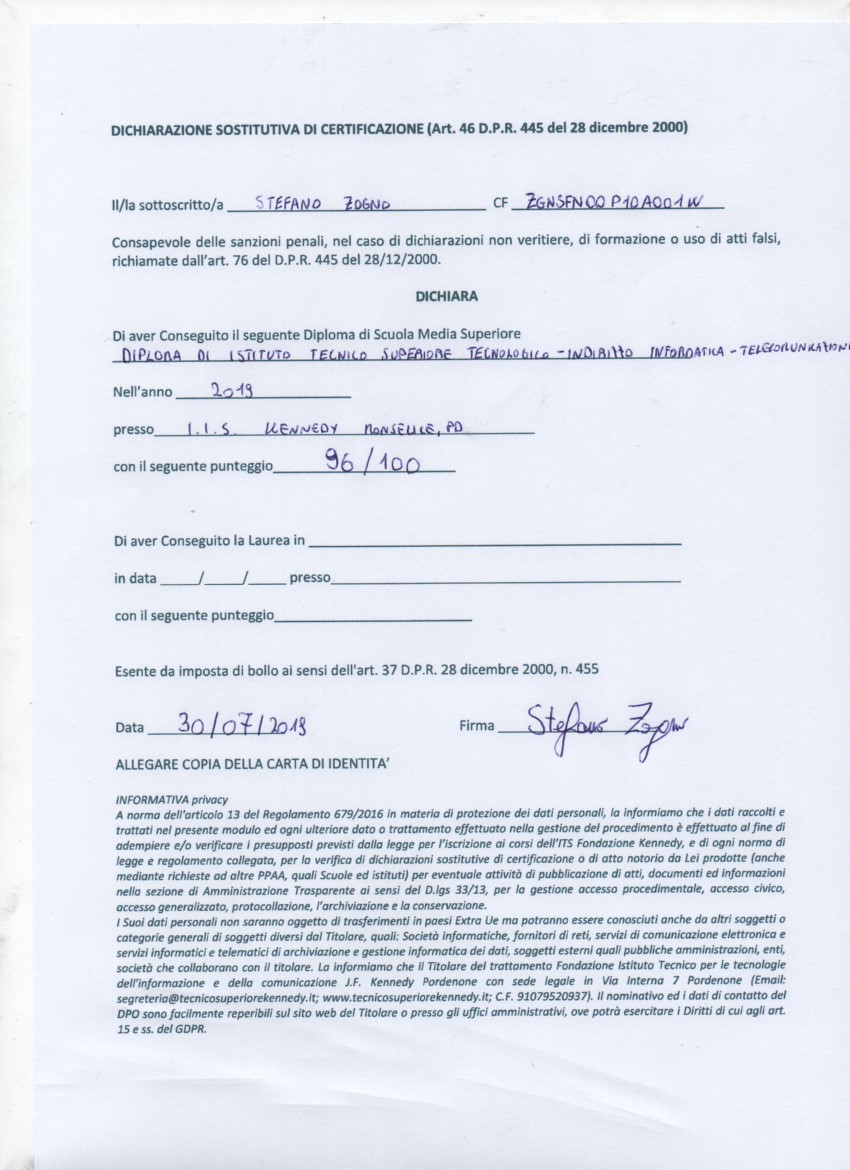 DICHIARAZIONE SOSTITUTIVA DI CERTIFICAZIONE (Art. 46 D.P.R. 445 del 28 dicembre 2000)
Il/la sottoscritto/a STEFANO ZOGNO CF ZGNSFN00P10A001W
Consapevole delle sanzioni penali, nel caso di dichiarazioni non veritiere, di formazione o uso di atti falsi,
richiamate dall'art. 76 del D.P.R. 445 del 28/12/2000.
DICHIARA
Di aver Conseguito il seguente Diploma di Scuola Media Superiore
DIPLOMA DI ISTITUTO TECNICO SUPERIORE TECNOLOGICO - INDIRIZZO INFORMATICA - TELECOMUNICAZIONI
Nell'anno 2019
presso I.I.S. KENNEDY MONSELICE, PD
con il seguente punteggio 96/100
Di aver Conseguito la Laurea in
in data ____/____/____ presso
con il seguente punteggio
Esente da imposta di bollo ai sensi dell'art. 37 D.P.R. 28 dicembre 2000, n. 455
Data 30/07/2019 Firma Stefano Zogno
ALLEGARE COPIA DELLA CARTA DI IDENTITA'
INFORMATIVA privacy
A norma dell'articolo 13 del Regolamento 679/2016 in materia di protezione dei dati personali, la informiamo che i dati raccolti e
trattati nel presente modulo ed ogni ulteriore dato o trattamento effettuato nella gestione del procedimento è effettuato al fine di
adempiere e/o verificare i presupposti previsti dalla legge per l'iscrizione ai corsi dell'ITS Fondazione Kennedy, e di ogni norma di
legge e regolamento collegata, per la verifica di dichiarazioni sostitutive di certificazione o di atto notorio da Lei prodotte (anche
mediante richieste ad altre PPAA, quali Scuole ed istituti) per eventuale attività di pubblicazione di atti, documenti ed informazioni
nella sezione di Amministrazione Trasparente ai sensi del D.lgs 33/13, per la gestione accesso procedimentale, accesso civico,
accesso generalizzato, protocollazione, l'archiviazione e la conservazione.
I Suoi dati personali non saranno oggetto di trasferimenti in paesi Extra Ue ma potranno essere conosciuti anche da altri soggetti o
categorie generali di soggetti diversi dal Titolare, quali: Società informatiche, fornitori di reti, servizi di comunicazione elettronica e
servizi informatici e telematici di archiviazione e gestione informatica dei dati, soggetti esterni quali pubbliche amministrazioni, enti,
società che collaborano con il titolare. La informiamo che il Titolare del trattamento Fondazione Istituto Tecnico per le tecnologie
dell'informazione e della comunicazione J.F. Kennedy Pordenone con sede legale in Via Interna 7 Pordenone (Email:
segreteria@tecnicosuperiorekennedy.it; www.tecnicosuperiorekennedy.it; C.F. 91079520937). Il nominativo ed i dati di contatto del
DPO sono facilmente reperibili sul sito web del Titolare o presso gli uffici amministrativi, ove potrà esercitare i Diritti di cui agli art.
15 e ss. del GDPR.